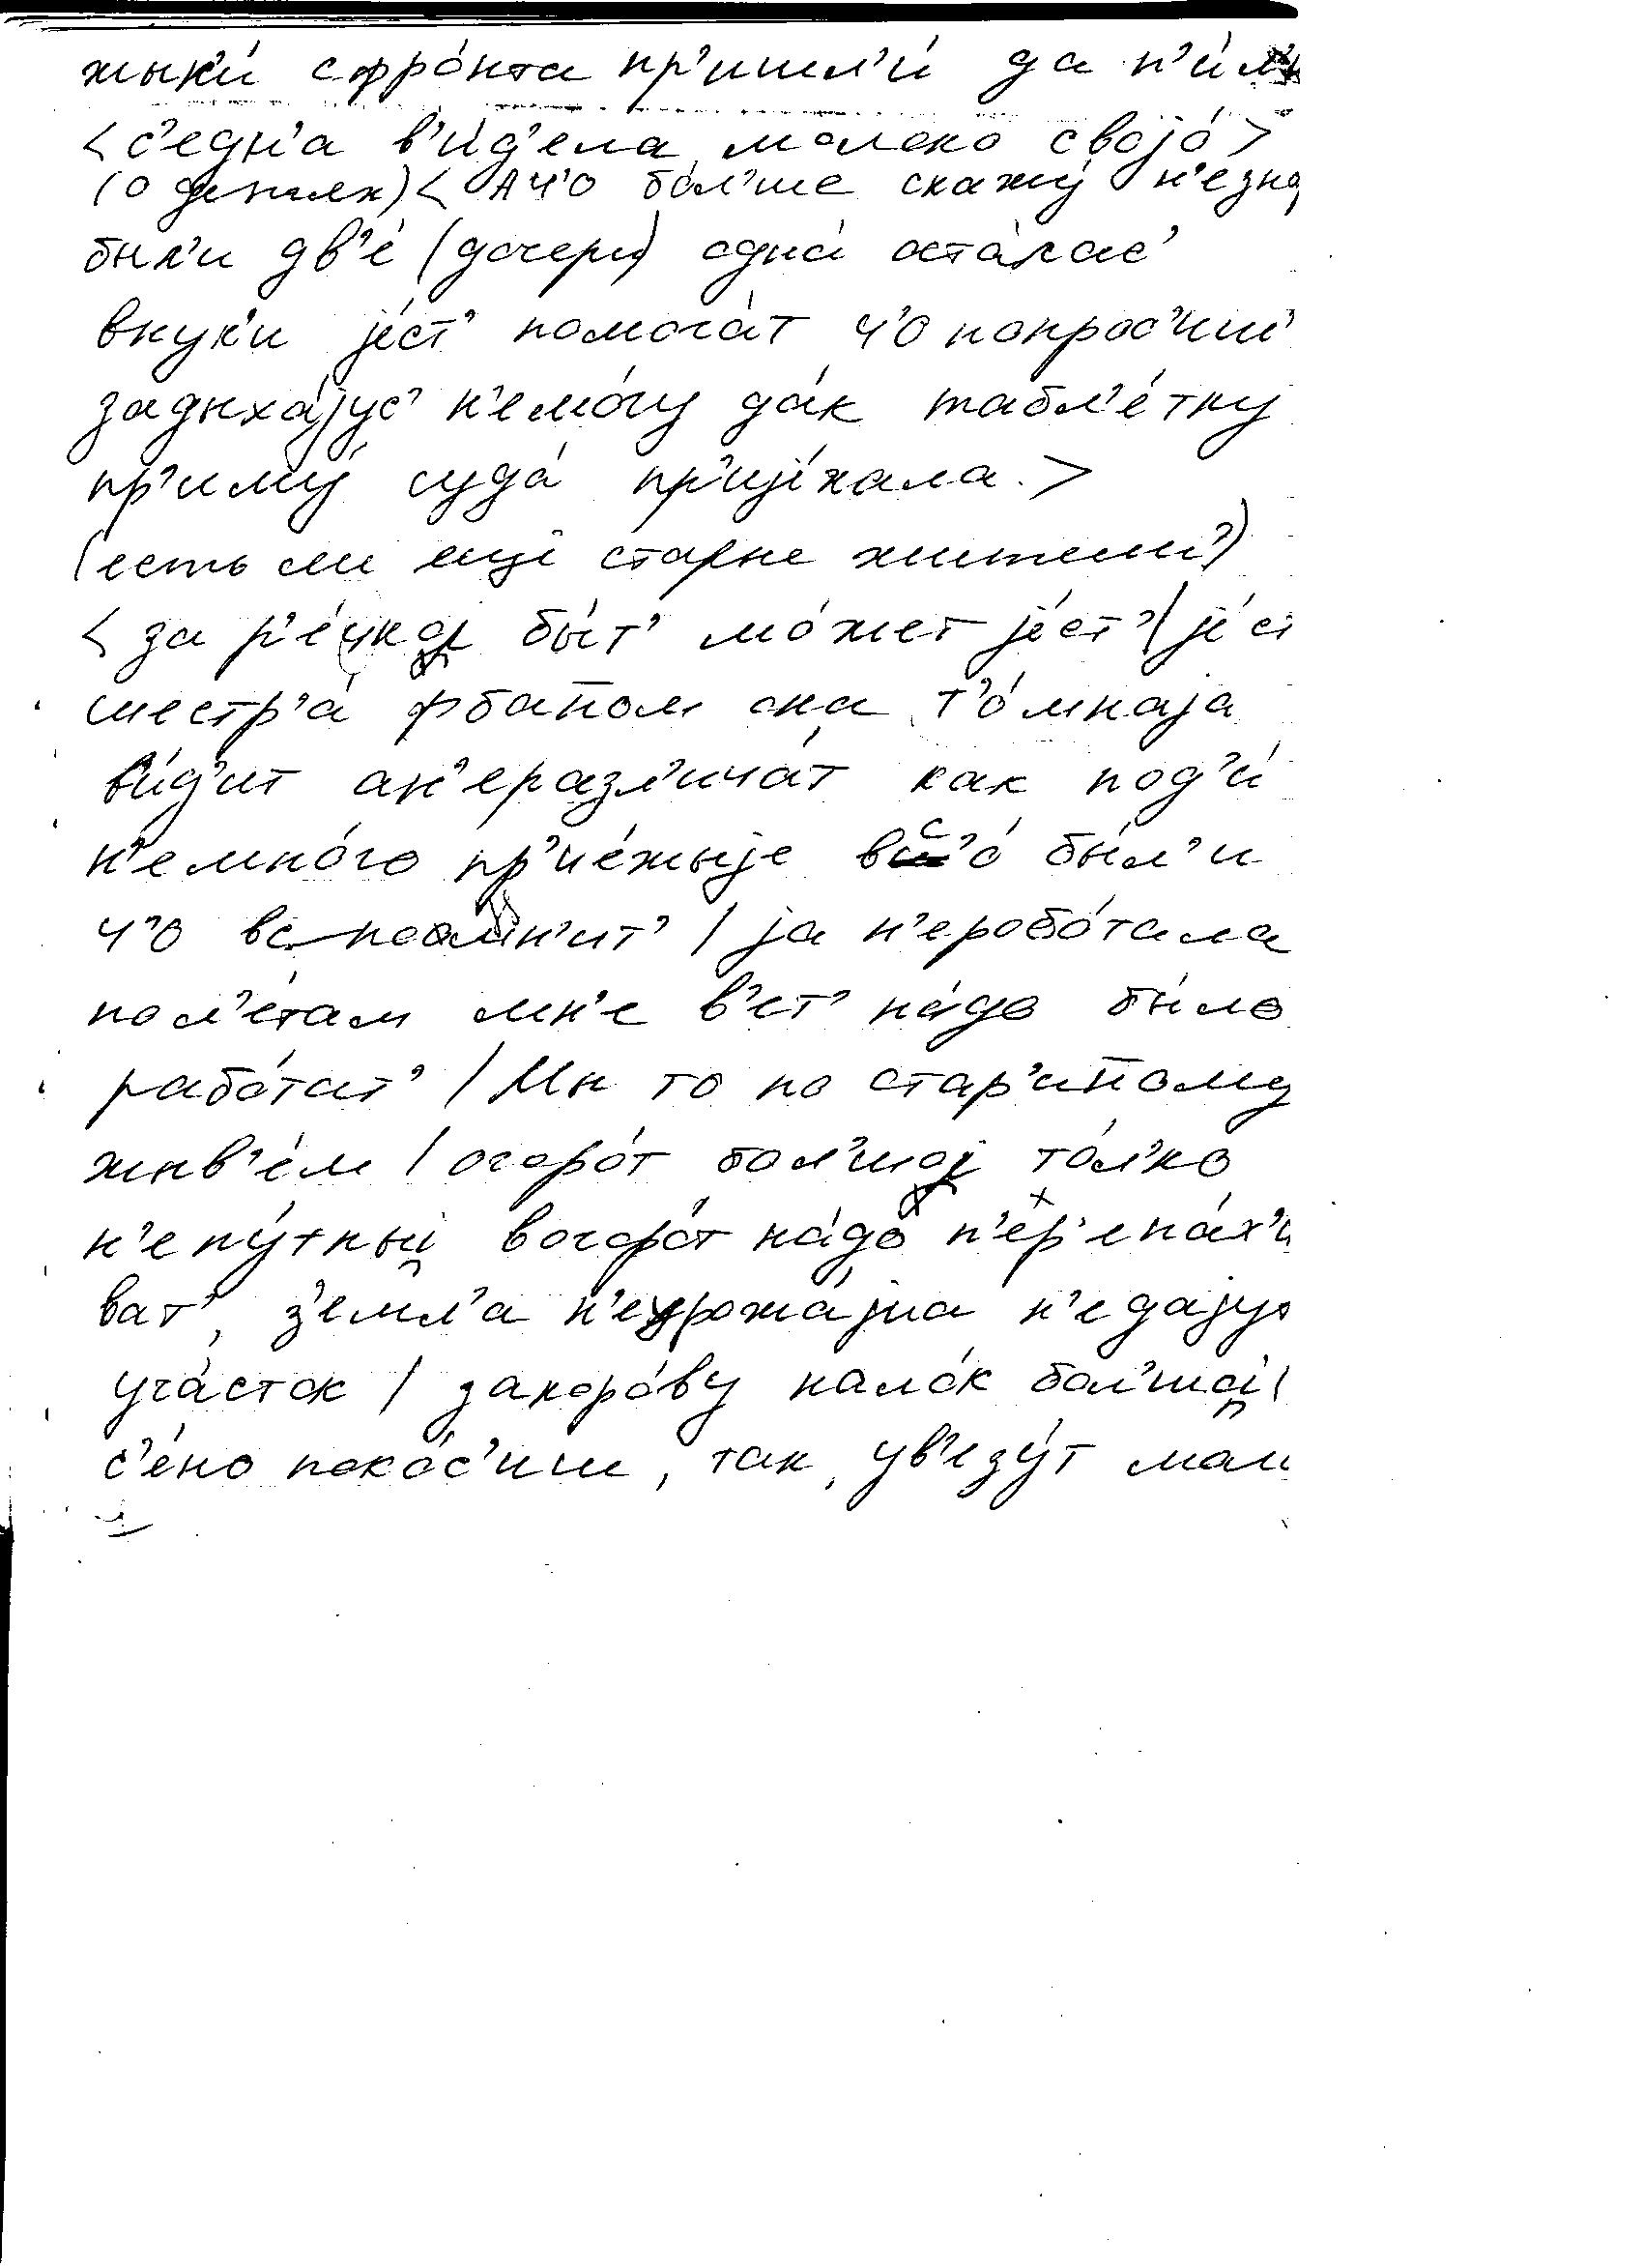 жык'и́ сфро́нта пр'ишл'и́ да п'и́л'и
<с'едн'а в'и́д'ела молоко својо́>
(о детях)< А ч'о бо́л'ше скажу́ н'езна
был'и дв'е́ (дочери) одна́ оста́лас'
внук'и је́ст' помога́т ч'о попрос'иш
задыха́јус' н'емо́гу да́к табл'е́тку
пр'иму́ суда́ пр'ије́хала.>
(есть ли ещё старые жители?)
<за р'е́чкој бы́т' мо́жет је́ст'/је́ст
шестр'а́ рбатом она т'о́мнаја
в'и́д'ит ан'еразл'ича́т как под'и́
н'емно́го пр'ие́жыје вс'о́ бы́л'и
ч'о вспомн'ит' / ја н'еробо́тала
пол'е́там мн'е в'ет' на́до было
рабо́тат' / Мы то по стар'иному
жыв'о́м / огоро́т бол'шој то́л'ко
н'епу́тный вогоро́т на́до п'ер'епа́х'и
ват', з'емл'а н'еурожа́јна н'едајут
уча́сток / закоро́ву нало́к бол'шој /
с'е́но поко́с'иш, так, ув'езу́т маш